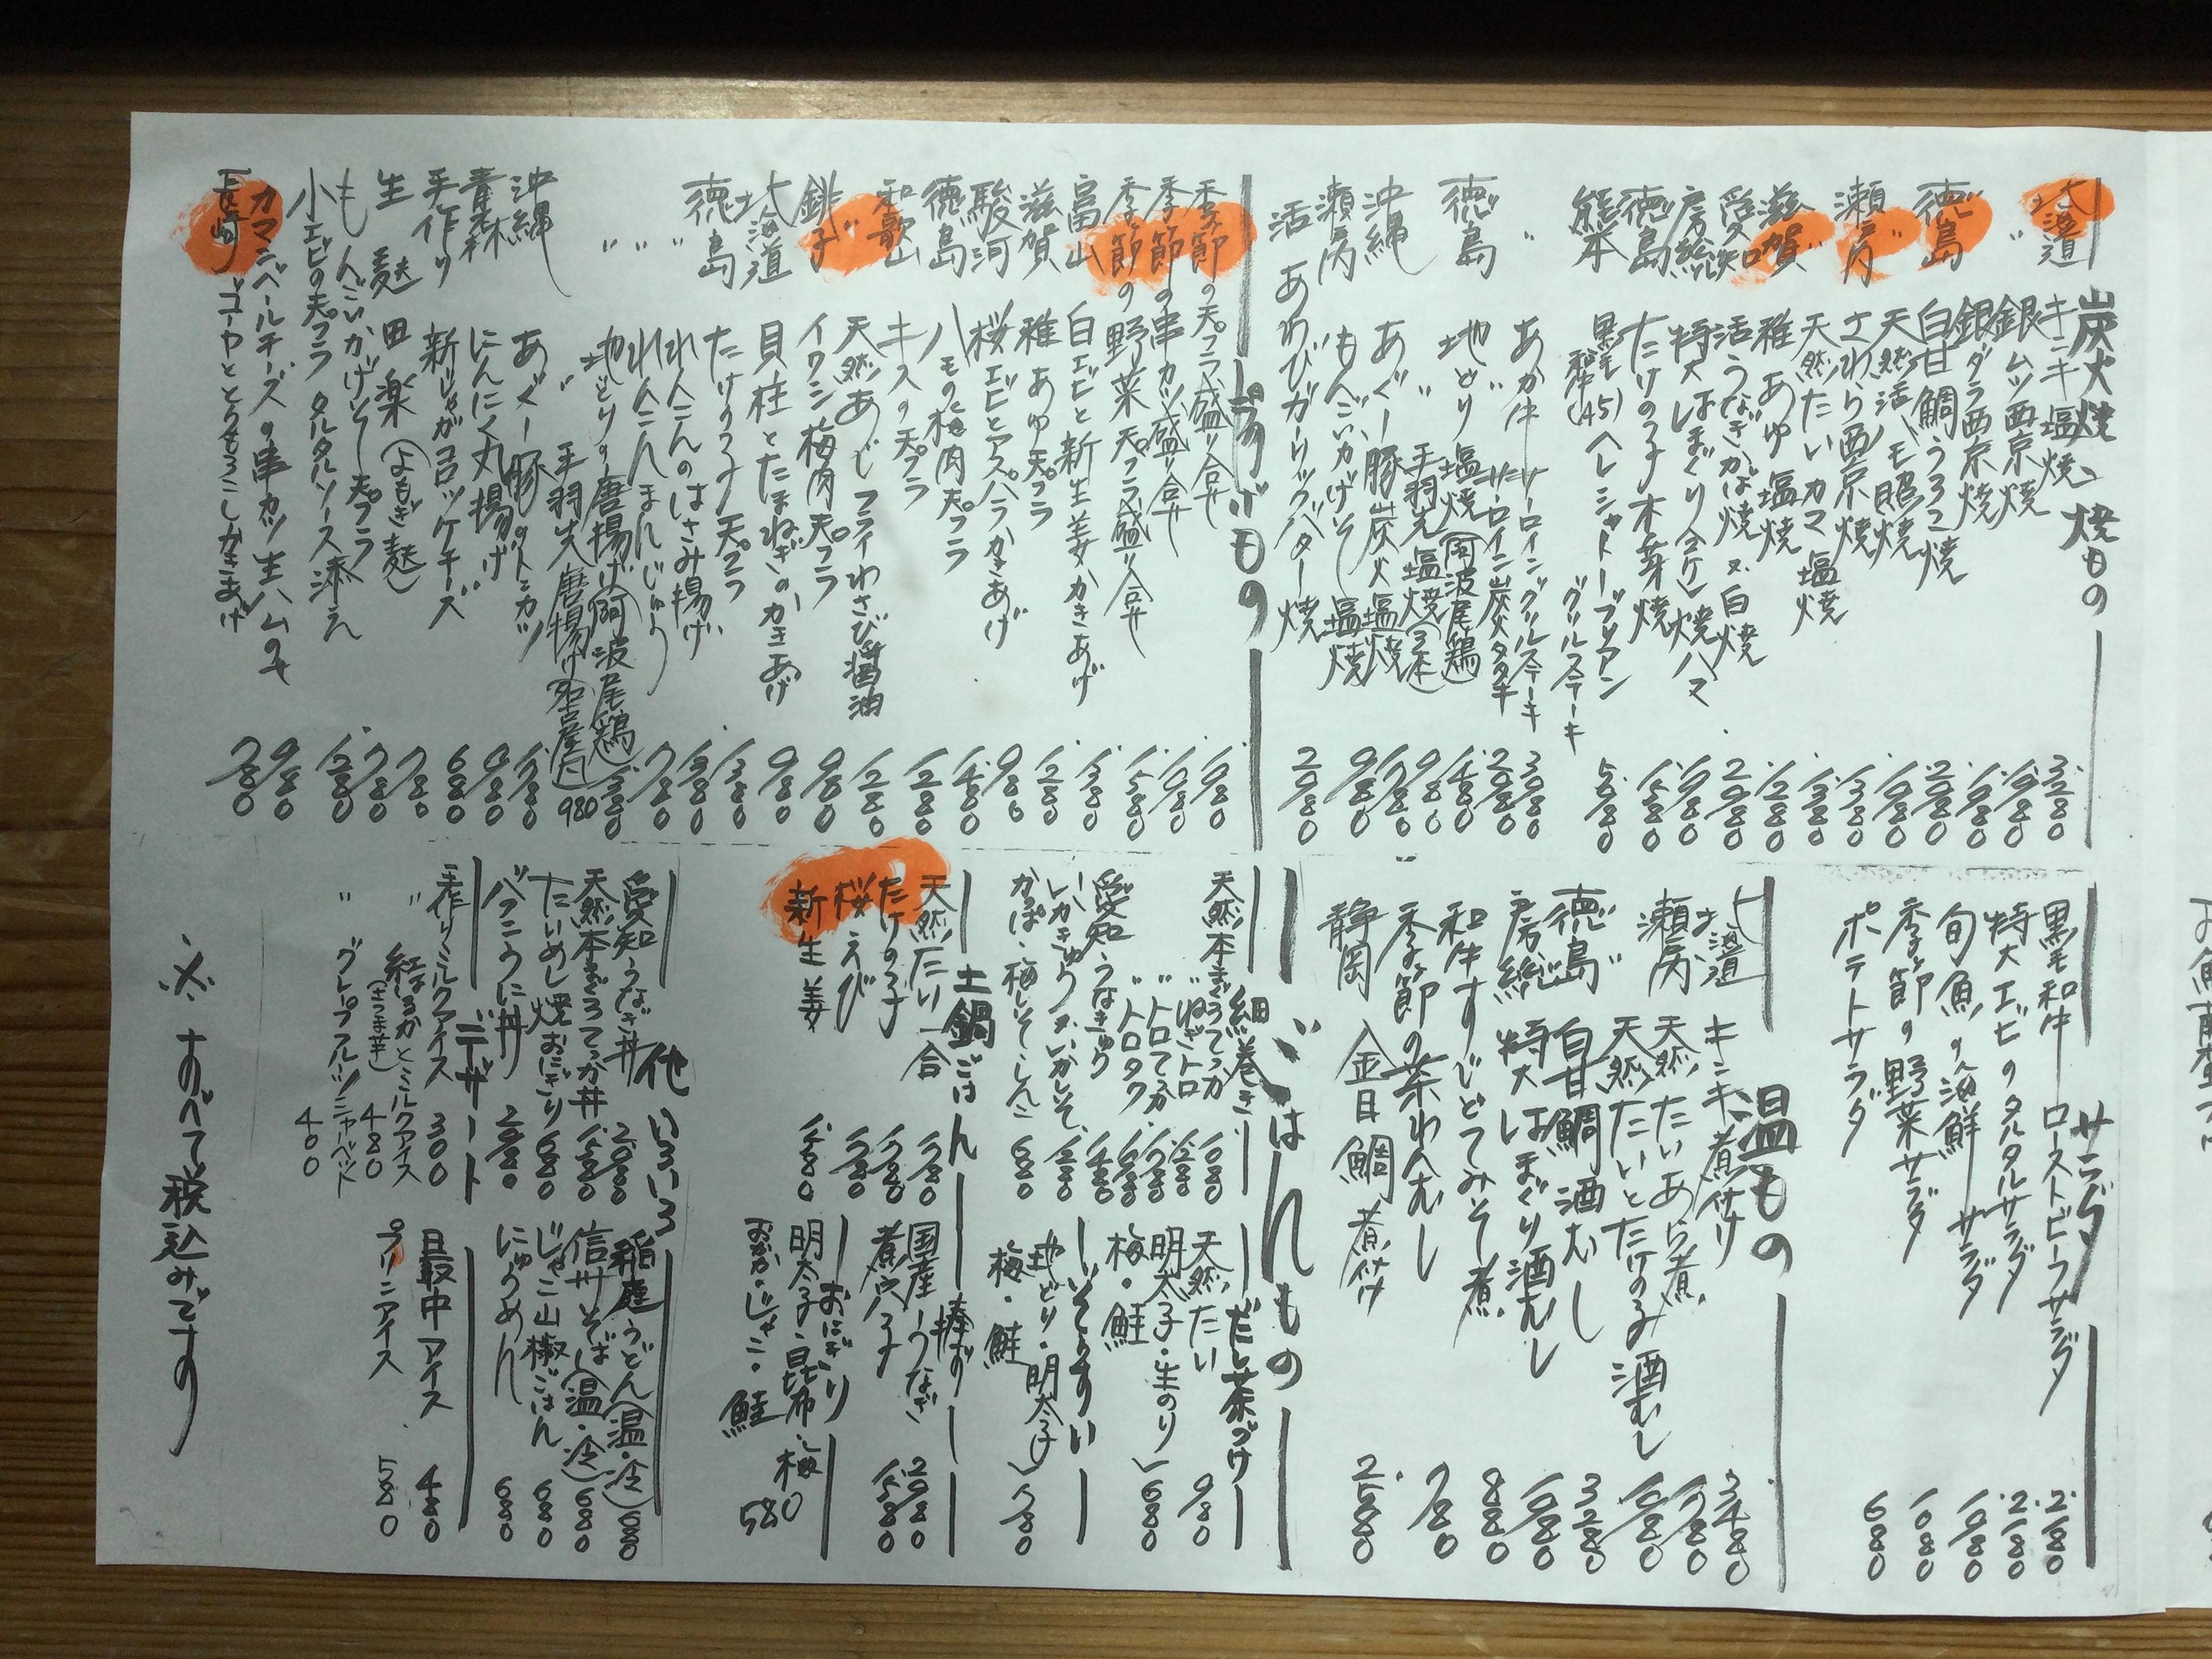 炭火焼、焼もの
北海道 キンキ塩焼 3.280
〃 銀ムツ西京焼 1.980
銀ダラ西京焼 1.980
徳島 白甘鯛うろこ焼 2.080
〃 天然活ハモ照焼 1.980
瀬戸内 さわら西京焼 1.380
〃 天然たいカマ塩焼 1.380
滋賀 稚あゆ塩焼 1.280
愛知 活うなぎかば焼 又 白焼 2.980
房総 特大はまぐり(2ケ)焼ハマ 1.980
徳島 たけのこ木の芽焼 1.580
熊本 黒毛和牛(A5)ヘレシャトーブリアン
グリルステーキ 5.980
〃 あか牛 サーロイングリルステーキ 3.080
〃 サーロイン炭火タタキ 2.980
徳島 地どり塩焼(阿波尾鶏) 1.480
〃 手羽先塩焼(3本) 980
沖縄 あぐー豚炭火塩焼 1.780
瀬戸内 もんごいかげそ塩焼 980
活 あわびガーリックバター焼 2.980
揚げもの
季節の天プラ盛り合せ 1.980
季節の串カツ盛り合せ 1.980
季節の野菜天プラ盛り合せ 1.580
富山 白エビと新生姜かきあげ 1.380
滋賀 稚あゆ天プラ 1.280
駿河 桜エビとアスパラかきあげ 980
徳島 ハモの梅肉天プラ 1.480
和歌山 キスの天プラ 1.280
〃 天然あじフライわさび醤油 1.280
銚子 イワシ梅肉天プラ 980
北海道 貝柱とたまねぎのかきあげ 980
徳島 たけのこ天プラ 1.380
〃 れんこんのはさみ揚げ 1.380
〃 れんこんまんじゅう 780
〃 地どりの唐揚げ(阿波尾鶏) 1.380
〃 手羽先唐揚げ(名古屋風) 980
沖縄 あぐー豚のトンカツ 1.780
青森 にんにく丸揚げ 980
手作り 新じゃがコロッケチーズ 680
生麩田楽(よもぎ麩) 780
もんごいかげそ天プラ 780
小エビの天プラ タルタルソース添え 1.280
カマンベールチーズの串カツ生ハムのせ 980
長崎 ゴーヤととうもろこしかきあげ 780
サラダ
黒毛和牛ローストビーフサラダ 2.280
特大エビのタルタルサラダ 2.180
旬魚の海鮮サラダ 1.980
季節の野菜サラダ 1.080
ポテトサラダ 680
温もの
北海道 キンキ煮付け 3.480
瀬戸内 天然たいあら煮 1.780
〃 天然たいとたけのこ酒むし 1.980
徳島 白甘鯛酒むし 3.280
房総 特大はまぐり酒むし 1.980
和牛すじどてみそ煮 880
季節の茶わんむし 780
静岡 金目鯛煮付け 2.580
ごはんもの
細巻き
天然本まぐろてっか 1.080
〃 ねぎトロ 1.280
〃 トロてっか 1.780
〃 トロタク 1.680
愛知 うなきゅう 1.480
いかきゅう又いかしそ 1.280
かっぱ・梅しそ・しんこ 680
だし茶づけ
天然たい 980
明太子・生のり
梅・鮭 680
ぞうすい
地どり・明太子
梅・鮭 780
土鍋ごはん
天然たい 一合 1.780
たけのこ 1.780
桜えび 1.780
新生姜 1.580
棒ずし
国産うなぎ 2.980
煮穴子 1.580
おにぎり
明太子・昆布・梅
おかか・じゃこ・鮭 580
他いろいろ
愛知うなぎ丼 2.980
天然本まぐろてっか丼 1.580
たいめし焼おにぎり 680
バフンうに丼 2.980
稲庭うどん(温・冷) 680
信州そば(温・冷) 680
じゃこ山椒ごはん 680
にゅうめん 680
デザート
手作りミルクアイス 300
〃 紅はるかとミルクアイス
(さつま芋) 480
〃 グレープフルーツシャーベット 400
最中アイス 480
プリンアイス 580
※すべて税込みです